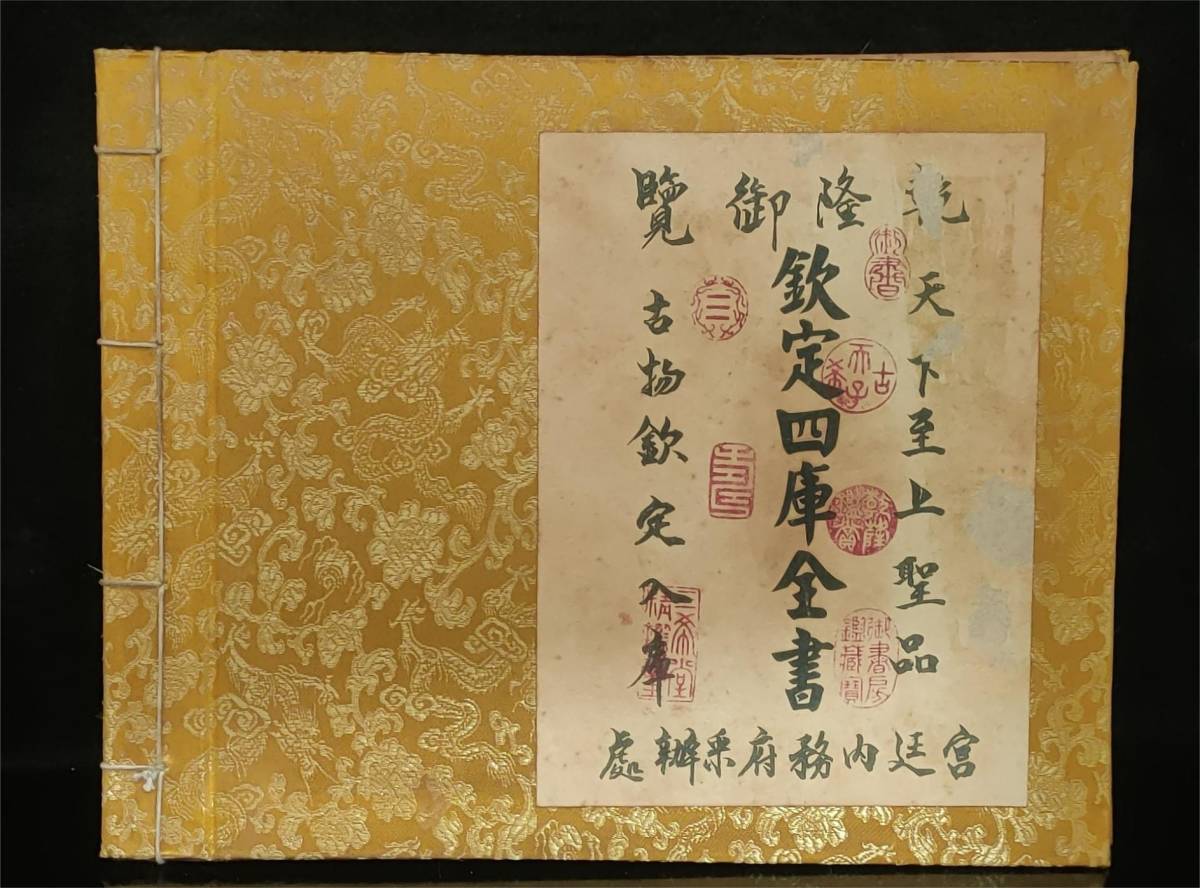 乾隆御覽
天下至上聖品
欽定四庫全書
古物欽定入庫
宫廷内務府采辦處
御書
古希天子
乾隆鑑賞
御書房鑑藏寶
三希堂精鑑璽